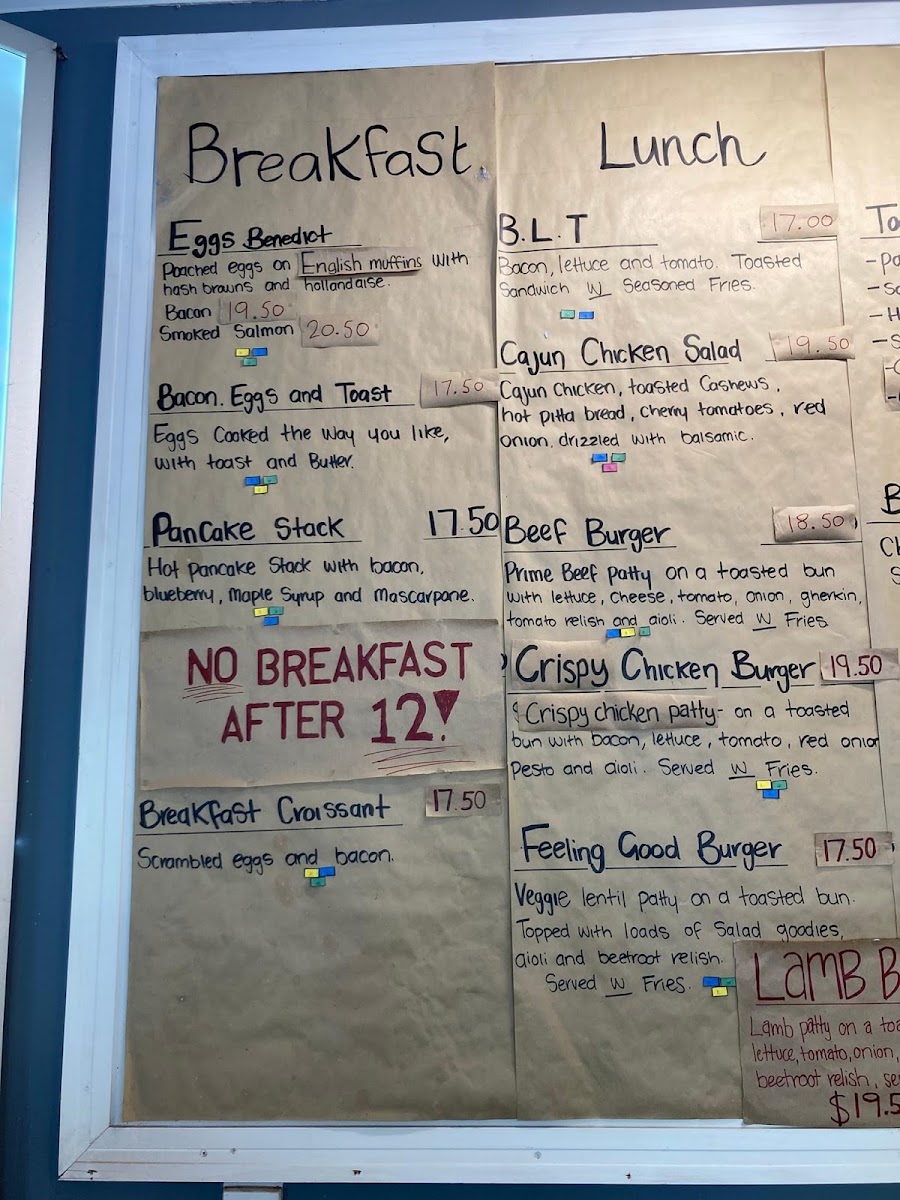 Breakfast
Eggs Benedict
Poached eggs on English muffins with
hash browns and hollandaise.
Bacon 19.50
Smoked Salmon 20.50
Bacon. Eggs and Toast 17.50
Eggs Cooked the way you like,
with toast and Butter.
Pancake Stack 17.50
Hot pancake Stack with bacon,
blueberry, Maple Syrup and Mascarpone.
NO BREAKFAST
AFTER 12!
Breakfast Croissant 17.50
Scrambled eggs and bacon.
Lunch
B.L.T 17.00
Bacon, lettuce and tomato. Toasted
Sandwich W Seasoned Fries.
Cajun Chicken Salad 19.50
Cajun Chicken, toasted Cashews,
hot pitta bread, cherry tomatoes, red
onion, drizzled with balsamic.
Beef Burger 18.50
Prime Beef patty on a toasted bun
with lettuce, cheese, tomato, onion, gherkin,
tomato relish and aioli. Served W Fries
Crispy Chicken Burger 19.50
Crispy chicken patty - on a toasted
bun with bacon, lettuce, tomato, red onion
Pesto and aioli. Served W Fries.
Feeling Good Burger 17.50
Veggie lentil patty on a toasted bun.
Topped with loads of Salad goodies,
aioli and beetroot relish.
Served W Fries.
LAMB B
Lamb patty on a toa
lettuce, tomato, onion,
beetroot relish, se
$19.5